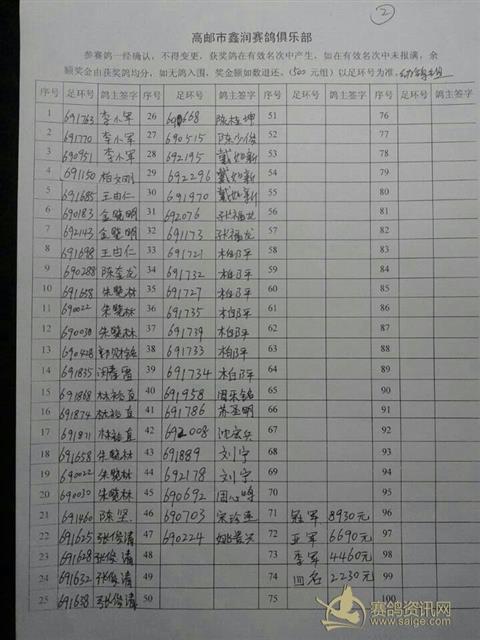 ②
高邮市鑫润赛鸽俱乐部
参赛鸽一经确认，不得变更，获奖鸽在有效名次中产生，如在有效名次中未报满，余
额奖金由获奖鸽均分，如无鸽入围，奖金额如数退还。(500元组)以足环号为准。幼鸽组
序号 足环号 鸽主签字 序号 足环号 鸽主签字 序号 足环号 鸽主签字 序号 足环号 鸽主签字
1 691763 李小军 26 668 陈桂坤 51 76
2 691770 李小军 27 690515 陈少俊 52 77
3 690951 李小军 28 692195 戴如新 53 78
4 691150 柏文刚 29 692296 戴如新 54 79
5 691685 王由仁 30 691970 戴如新 55 80
6 690183 金晓明 31 692076 张福龙 56 81
7 692143 金晓明 32 691173 张福龙 57 82
8 691698 王由仁 33 691721 柏阳平 58 83
9 690288 陈奎龙 34 691732 柏阳平 59 84
10 691658 朱晓林 35 691727 柏阳平 60 85
11 690022 朱晓林 36 691735 柏阳平 61 86
12 690030 朱晓林 37 691739 柏阳平 62 87
13 690428 38 691733 柏阳平 63 88
14 691835 39 691734 柏阳平 64 89
15 691868 林裕直 40 691958 65 90
16 691874 林裕直 41 691786 苏圣明 66 91
17 691871 林裕直 42 692008 沈宏兵 67 92
18 691658 朱晓林 43 691889 刘宁 68 93
19 690022 朱晓林 44 692178 刘宁 69 94
20 690030 朱晓林 45 690692 周心峰 70 95
21 691460 陈坚 46 690703 71 冠军 8930元 96
22 691625 张俊清 47 690224 姚景兴 72 亚军 6690元 97
23 691628 张俊清 48 73 季军 4460元 98
24 691632 张俊清 49 74 四名 2230元 99
25 691638 张俊清 50 75 100
赛鸽资讯网
www.saige.com